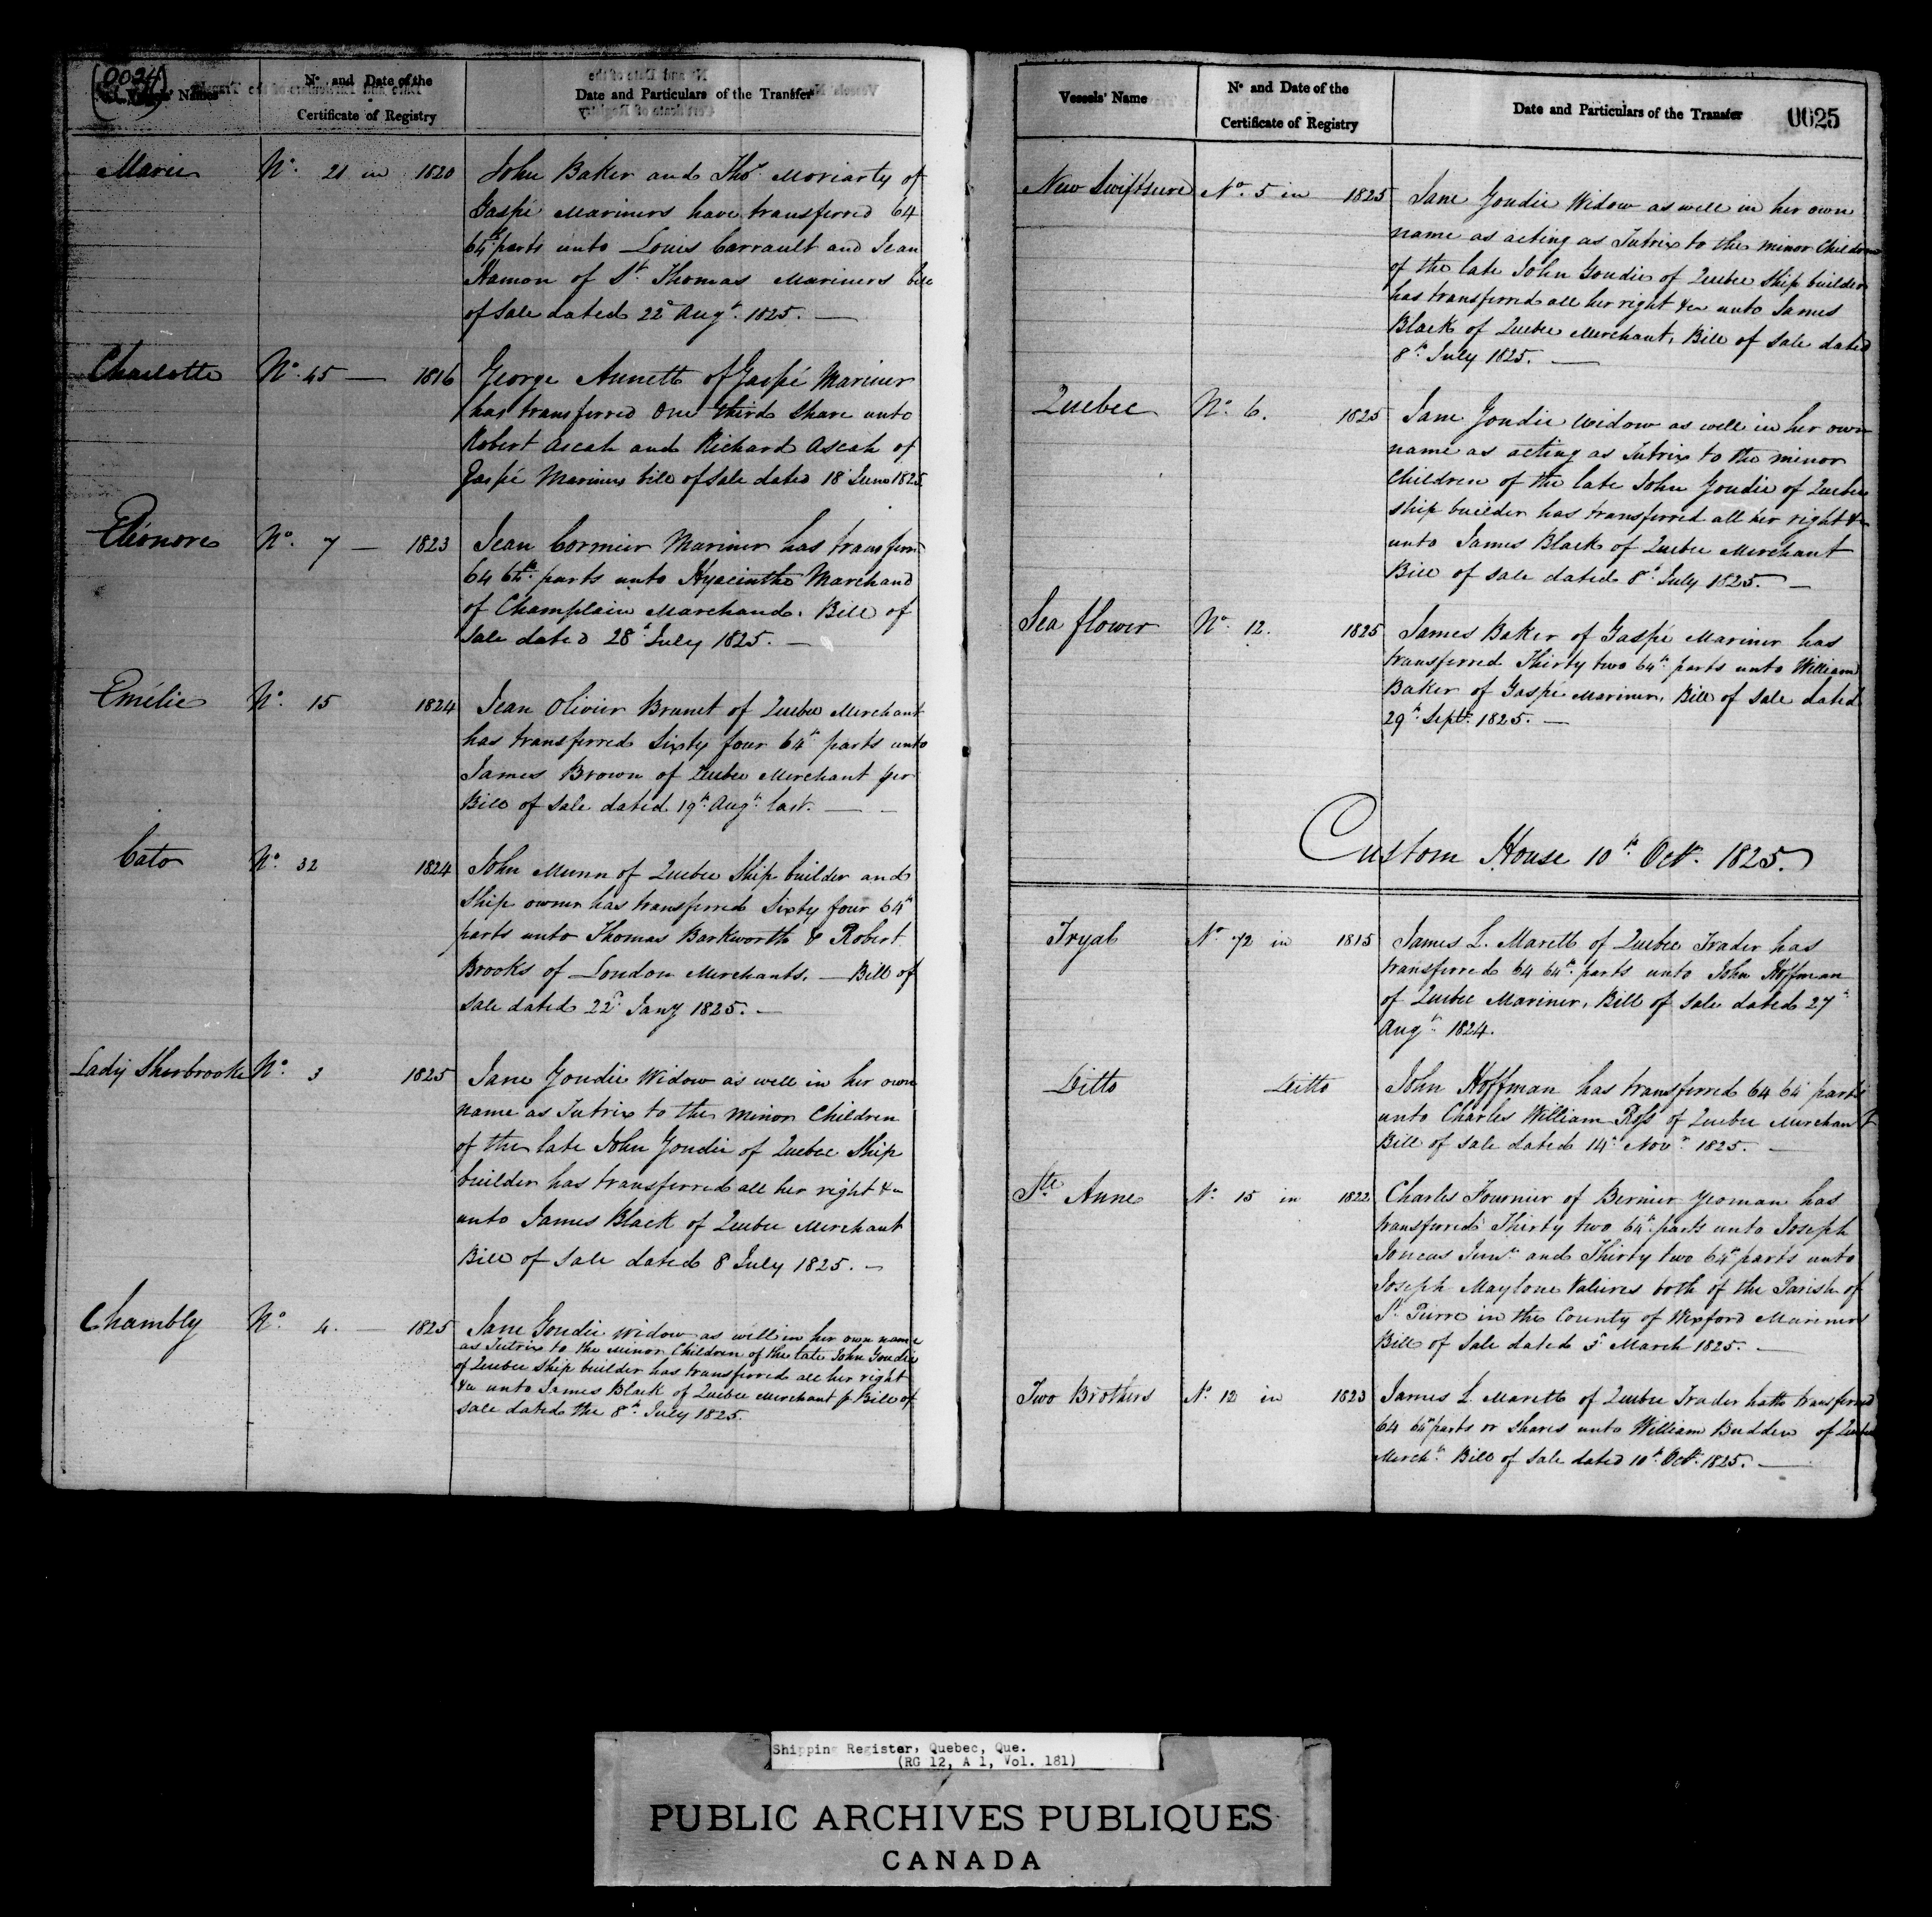 (0024)
Vessels' Names
No and Date of the
Certificate of Registry
Date and Particulars of the Transfer
Marie No. 21 in 1820 John Baker and Thos. Moriarty of
Gaspé Mariners have transferred 64
64th parts unto Louis Carrault and Jean
Hamon of St. Thomas Mariners bill
of Sale dated 22d Augt. 1825. —
Charlotte No. 45 — 1816 George Annett of Gaspé Mariner
has transferred One third Share unto
Robert Ascah and Richard Ascah of
Gaspé Mariners bill of Sale dated 18 June 1825
Eléonore No. 7 — 1823 Jean Cormier Mariner has transferred
64 64th parts unto Hyacinthe Marchand
of Champlain Marchand. Bill of
Sale dated 28th July 1825. —
Emélie No. 15 1824 Jean Olivier Brunet of Quebec Merchant
has transferred Sixty four 64th parts unto
James Brown of Quebec Merchant per
Bill of Sale dated 19th Augt. last. —
Cato No. 32 1824 John Munn of Quebec Ship builder and
Ship owner has transferred Sixty four 64th
parts unto Thomas Barkworth & Robert
Brooks of London Merchants. — Bill of
Sale dated 22d Jany 1825. —
Lady Sherbrooke No. 3 1825 Jane Goudie Widow as well in her own
name as Tutrix to the Minor Children
of the late John Goudie of Quebec Ship
builder has transferred all her right &c
unto James Black of Quebec Merchant
Bill of Sale dated 8 July 1825. —
Chambly No. 4. — 1825 Jane Goudie widow as well in her own name
as Tutrix to the Minor Children of the late John Goudie
of Quebec Ship builder has transferred all her right
&c unto James Black of Quebec Merchant p Bill of
Sale dated the 8th July 1825.
Vessels' Name
No and Date of the
Certificate of Registry
Date and Particulars of the Transfer
0025
New Swiftsure No. 5 in 1825 Jane Goudie Widow as well in her own
name as acting as Tutrix to the minor Children
of the late John Goudie of Quebec Ship builder
has transferred all her right &c unto James
Black of Quebec Merchant, Bill of Sale dated
8th July 1825. —
Quebec No. 6. 1825 Jane Goudie widow as well in her own
name as acting as Tutrix to the minor
Children of the late John Goudie of Quebec
Ship builder has transferred all her right &c
unto James Black of Quebec Merchant
Bill of Sale dated 8th July 1825. —
Sea flower No. 12. 1825 James Baker of Gaspé Mariner has
transferred Thirty two 64th parts unto William
Baker of Gaspé Mariner, Bill of Sale dated
29th Septr. 1825. —
Custom House 10th Octr. 1825.
Tryal No. 72 in 1815 James L. Marett of Quebec Trader has
transferred 64 64th parts unto John Hoffman
of Quebec Mariner, Bill of Sale dated 27th
Augt. 1824.
Ditto Ditto John Hoffman has transferred 64 64 parts
unto Charles William Ross of Quebec Merchant
Bill of Sale dated 14th Novr. 1825. —
Ste Anne No. 15 in 1822 Charles Fournier of Bernier Yeoman has
transferred Thirty two 64th parts unto Joseph
Joncas Junr. and Thirty two 64th parts unto
Joseph Maylone both of the Parish of
St. Pierre in the County of Wexford Mariners
Bill of Sale dated 3d March 1825. —
Two Brothers No. 12 in 1823 James L. Marett of Quebec Trader hath transferred
64 64th parts or Shares unto William Budden of Quebec
Mercht. Bill of Sale dated 10th Octr. 1825. —
Shipping Register, Quebec, Que.
(RG 12, A 1, Vol. 181)
PUBLIC ARCHIVES PUBLIQUES
CANADA